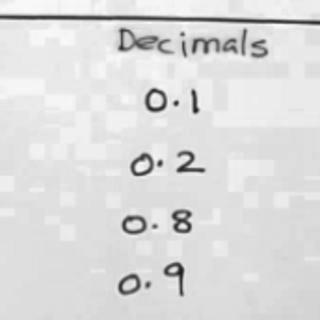 Decimals
0.1
0.2
0.8
0.9